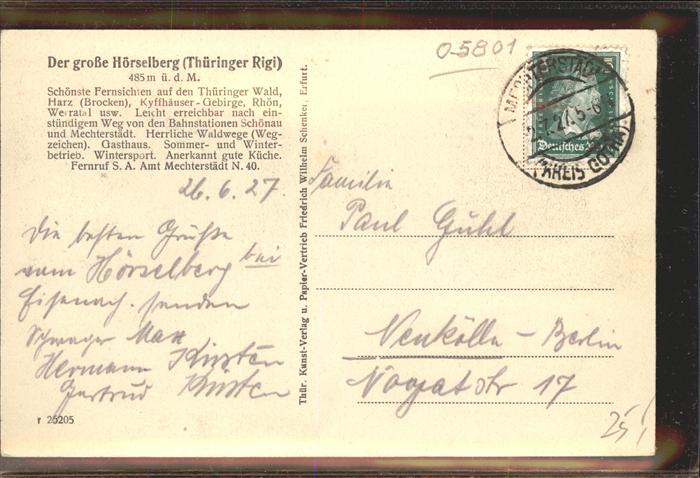 Der große Hörselberg (Thüringer Rigi)
485 m ü. d. M.
Schönste Fernsichten auf den Thüringer Wald,
Harz (Brocken), Kyffhäuser-Gebirge, Rhön,
Werratal usw. Leicht erreichbar nach ein-
stündigem Weg von den Bahnstationen Schönau
und Mechterstädt. Herrliche Waldwege (Weg-
zeichen). Gasthaus. Sommer- und Winter-
betrieb. Wintersport. Anerkannt gute Küche.
Fernruf S. A. Amt Mechterstädt N. 40.
26.6.27.
Die besten Grüße
vom Hörselberg bei
Eisenach. senden
Schwager Max
Hermann Kirsten
Gertrud Kirsten
r 25205
Thür. Kunst-Verlag u. Papier-Vertrieb Friedrich Wilhelm Schenker, Erfurt.
05801
MECHTERSTÄDT
.27.5-6
(KREIS GOTHA)
Deutsches
Familie
Paul Gühl
Neukölln-Berlin
Nogatstr 17
25!